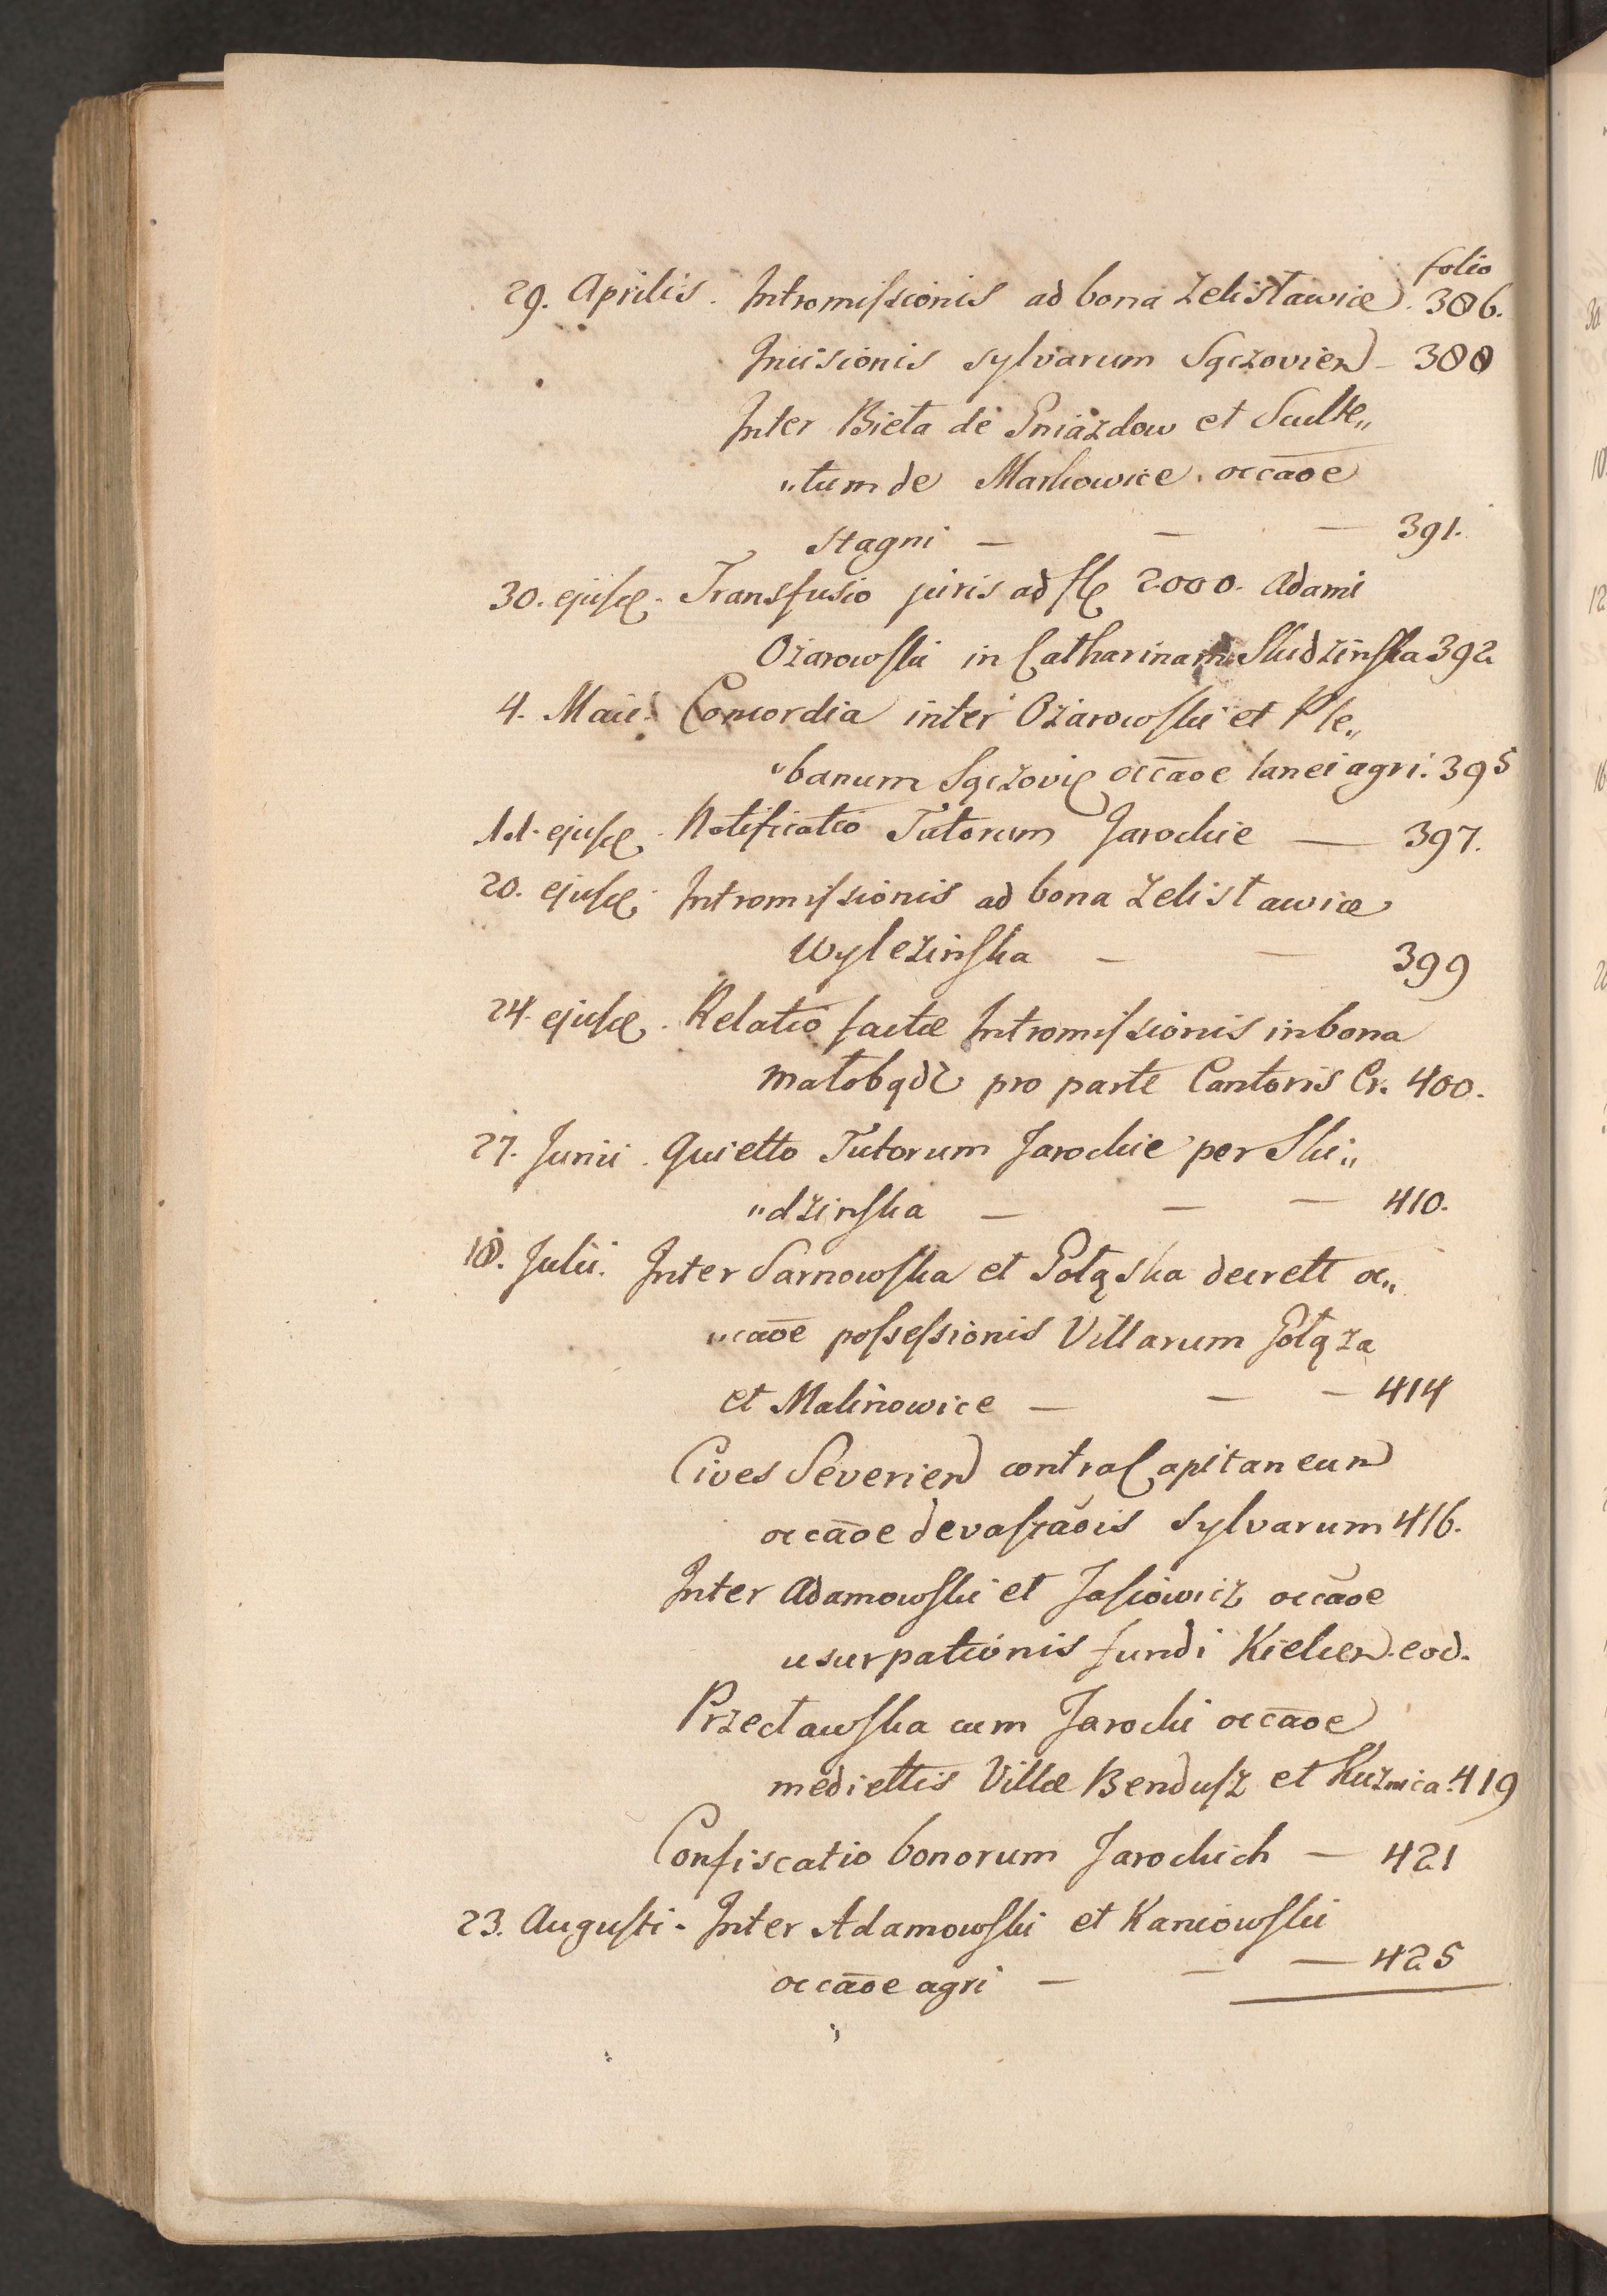 folio
29. Aprilis. Intromissionis ad bona Zelisławice. 386.
Incisionis sylvarum Sączovien 388
Inter Bieta de Gniazdow et Sculte„
„tum de Markowice occāoe
stagni — — — 391.
30. ejusd. Transfusio juris ad fl 2000. Adami
Ożarowski in Catharinam Skidzinska 392
4. Maii. Concordia inter Ożarowski et Ple„
„banum Sączovie occāoe lanei agri. 395
11. ejusd. Notificatio Tutorum Jarockie — 397.
20. ejusd. Intromissionis ad bona Zelisławice
Wylezinska — — 399
24. ejusd. Relatio factæ Intromissionis in bona
Małobądz pro parte Cantoris Cr. 400.
27. Junii. Quietto Tutorum Jarockie per Ski„
„dzinska — — — 410.
18. Julii. Inter Sarnowska et Gołąska decrett oc„
„cāoe possessionis Villarum Gołąza
et Malinowice — — — 414
Cives Severien contra Capitaneum
occāoe devastāois sylvarum 416.
Inter Adamowski et Jasiowicz occāoe
usurpationis fundi Kielcen. eod.
Przecławska cum Jarocki occāoe
mediettis Villæ Bendusz et Kuznica. 419
Confiscatio bonorum Jarockich — 421
23. Augusti. Inter Adamowski et Kaniowski
occāoe agri — — — 425